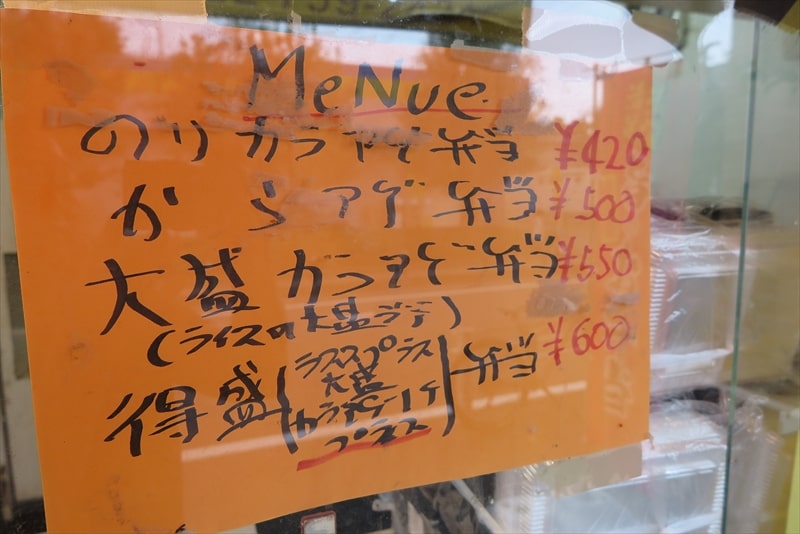 MeNue
のりカラアゲ弁当 ¥420
からアゲ弁当 ¥500
大盛カラアゲ弁当 ¥550
(ライスの大盛デラ)
得盛(ライスプラス
大盛
カラアゲ1ケ
プラス)弁当 ¥600